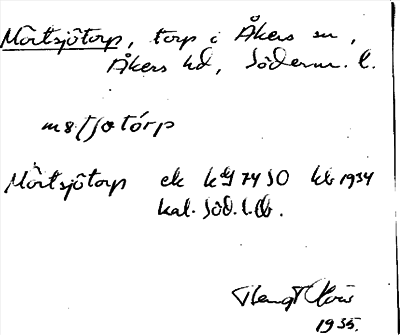 Mörtsjötorp, torp i Åkers sn,
Åkers hd, Söderm. l.
Mörtsjötorp ek kg 7450 kb 1934
kal. Söd. l.
Bengt
1935.